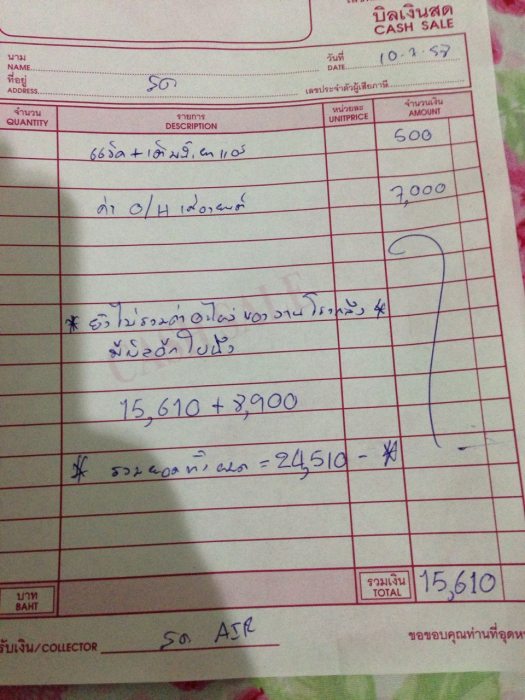 บิลเงินสด
CASH SALE
นาม
NAME
วันที่
DATE 10-2-57
ที่อยู่
ADDRESS รถ
เลขประจำตัวผู้เสียภาษี
จำนวน
QUANTITY
รายการ
DESCRIPTION
หน่วยละ
UNITPRICE
จำนวนเงิน
AMOUNT
+ เติมน้ำยาแอร์ 500
ค่า O/H เครื่องยนต์ 7,000
* ยังไม่รวมค่าอะไหล่ของงานโรงกลึง *
มีบิลอีกใบนึง
15,610 + 8,900
* รวมยอดทั้งหมด = 24,510 - *
บาท
BAHT
รวมเงิน
TOTAL 15,610
รับเงิน/COLLECTOR AIR
ขอขอบคุณท่านที่อุดห